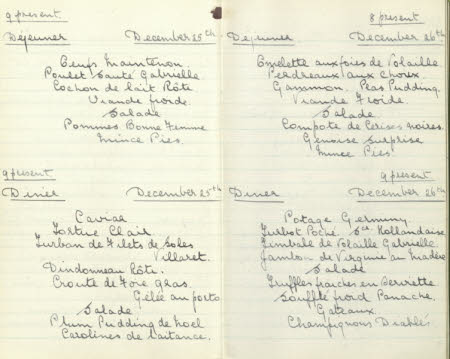 9 present
Déjeuner December 25th
Oeufs Maintenon
Poulet Sauté Gabrielle
Cochon de lait Rôte
Viande froide
Salade
Pommes Bonne Femme
Mince Pies.
9 present
Diner December 25th
Caviar
Tortue Clair
Turban de Filets de Soles
Villaret.
Dindonneau Rôte.
Croute de Foie gras.
Gelée au porto
Salade
Plum Pudding de Noel
Carolines de laitance.
8 present
Dejeuner December 26th
Omelette aux foies de Volaille
Perdreaux aux Choux
Gammon. Peas Pudding.
Viande Froide.
Salade
Compote de Cerises noires.
Genoise Surprise
Mince Pies.
9 present
Diner December 26th
Potage Germiny
Turbot Poché Sce Hollandaise
Timbale de Volaille Gabrielle
Jambon de Virginie au Madère
Salade
Truffes fraiches en Serviette
Soufflé froid Panache.
Gateaux
Champignons Diablés